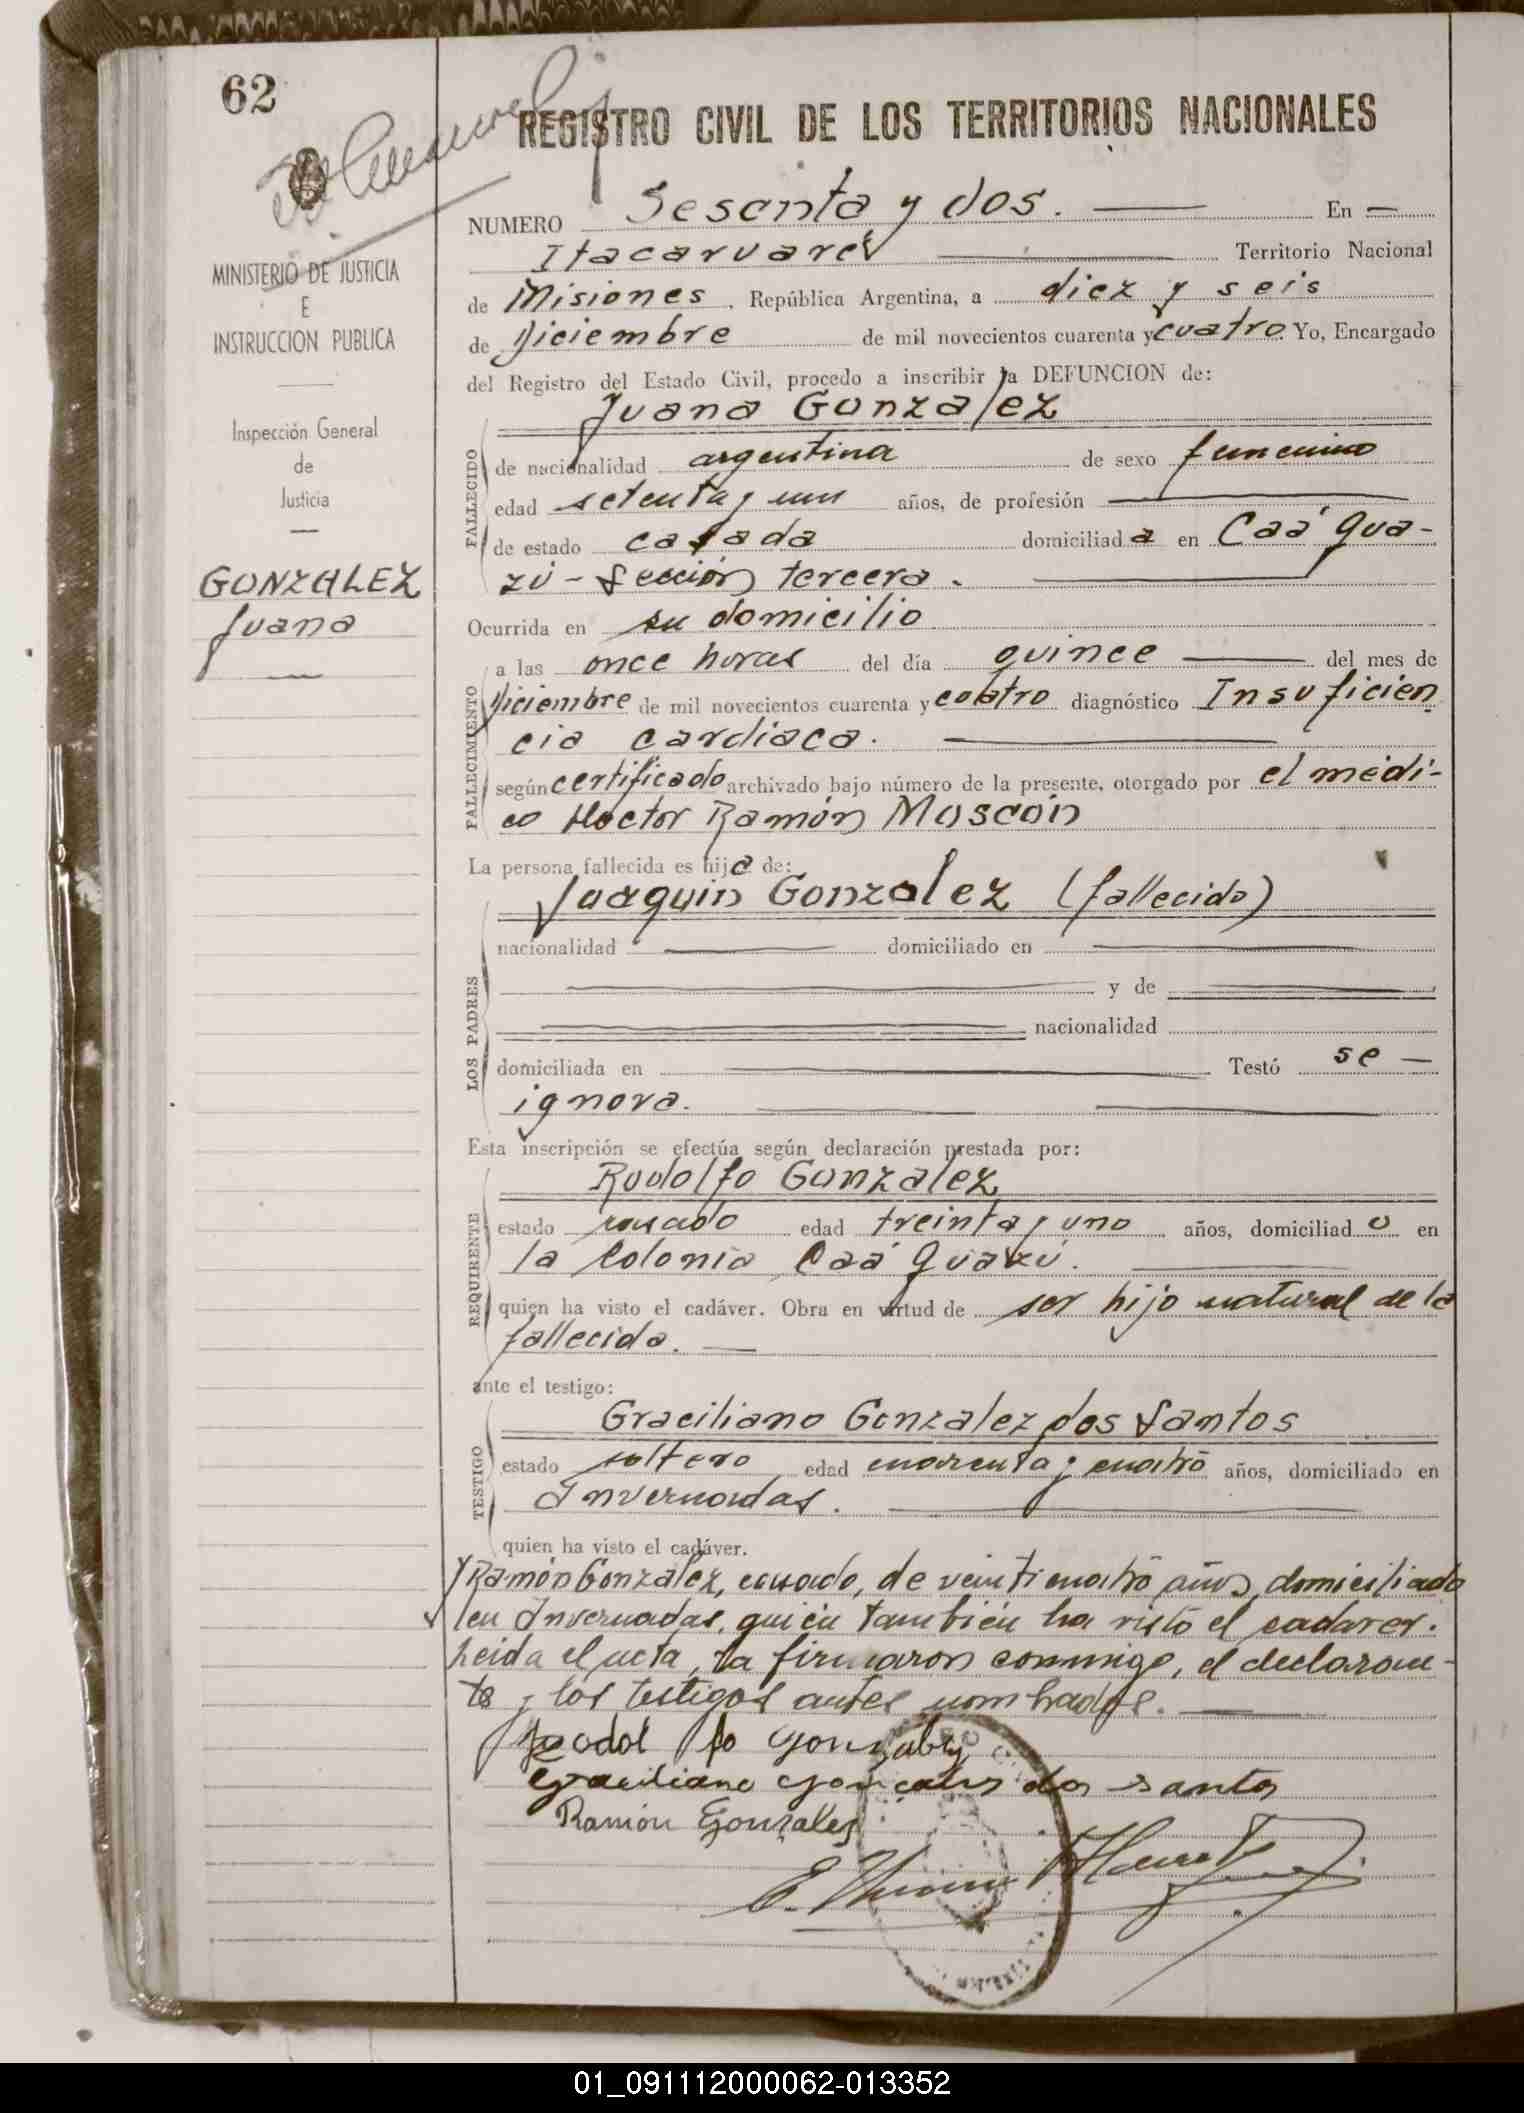 62
REGISTRO CIVIL DE LOS TERRITORIOS NACIONALES
MINISTERIO DE JUSTICIA
E
INSTRUCCION PUBLICA
Inspección General
de
Justicia
GONZALEZ
Juana
NUMERO Sesenta y dos. — En —
Itacaruaré — Territorio Nacional
de Misiones, República Argentina, a diez y seis
de Diciembre de mil novecientos cuarenta y cuatro. Yo, Encargado
del Registro del Estado Civil, procedo a inscribir la DEFUNCION de:
Juana Gonzalez
FALLECIDO
de nacionalidad argentina de sexo femenino
edad setenta y un años, de profesión —
de estado casada domiciliada en Caá Gua-
zú - Sección tercera. —
Ocurrida en su domicilio
FALLECIMIENTO
a las once horas del día quince — del mes de
Diciembre de mil novecientos cuarenta y cuatro diagnóstico Insuficien
cia cardiaca. —
según certificado archivado bajo número de la presente, otorgado por el médi-
co Hector Ramón Moscón
La persona fallecida es hija de:
Juaquin Gonzalez (fallecido)
LOS PADRES
nacionalidad — domiciliado en —
— y de —
— nacionalidad
domiciliada en — Testó se —
ignora. — —
Esta inscripción se efectúa según declaración prestada por:
Rodolfo Gonzalez
REQUIRENTE
estado casado edad treinta y uno años, domiciliado en
la Colonia Caá Guazú. —
quien ha visto el cadáver. Obra en virtud de ser hijo natural de la
fallecida. —
ante el testigo:
Graciliano Gonzalez dos Santos
TESTIGO
estado soltero edad cuarenta y cuatro años, domiciliado en
Invernadas. —
quien ha visto el cadáver.
y Ramón Gonzalez, casado, de veinticuatro años, domiciliado
en Invernadas, quien también ha visto el cadaver.
Leida el acta, la firmaron conmigo, el declaran-
te y los testigos antes nombrados. —
Rodolfo Gonzalez
Graciliano Gonçales dos Santos
Ramón Gonzalez
01_091112000062-013352